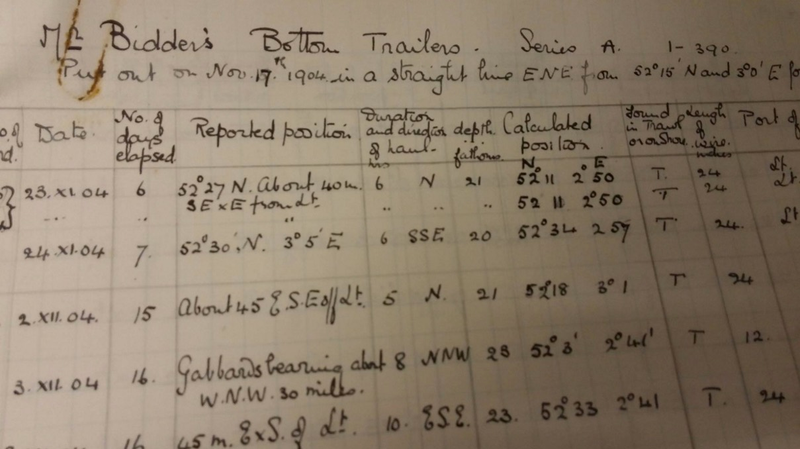 Mr Bidder's Bottom Trailers. Series A. 1-390.
Put out on Nov. 17th 1904 in a straight line ENE from 52°15' N and 3°0' E for
Date. No. of days elapsed Reported position Duration and direction of haul- hrs depth fathoms. Calculated position. N E found in Trawl or on Shore. Length of wire. inches Port of
23.XI.04 6 52°27 N. About 40m. 6 N 21 52°11 2°50 T. 24 Lt.
SE x E from Lt. " " " 52 11 2°50 T 24 Lt
24.XI.04 7. 52°30'.N. 3°5'E 6 SSE 20 52°34 2 57 T 24. Lt
2.XII.04. 15 About 45 E.S.E off Lt. 5 N. 21 52°18 3°1 T 24
3.XII.04 16. Gabbards bearing about 8 NNW 23 52°3' 2°41' T 12.
W.N.W. 30 miles.
16 45 m. ExS. of Lt. 10. ESE. 23. 52°33 2°41 T. 24